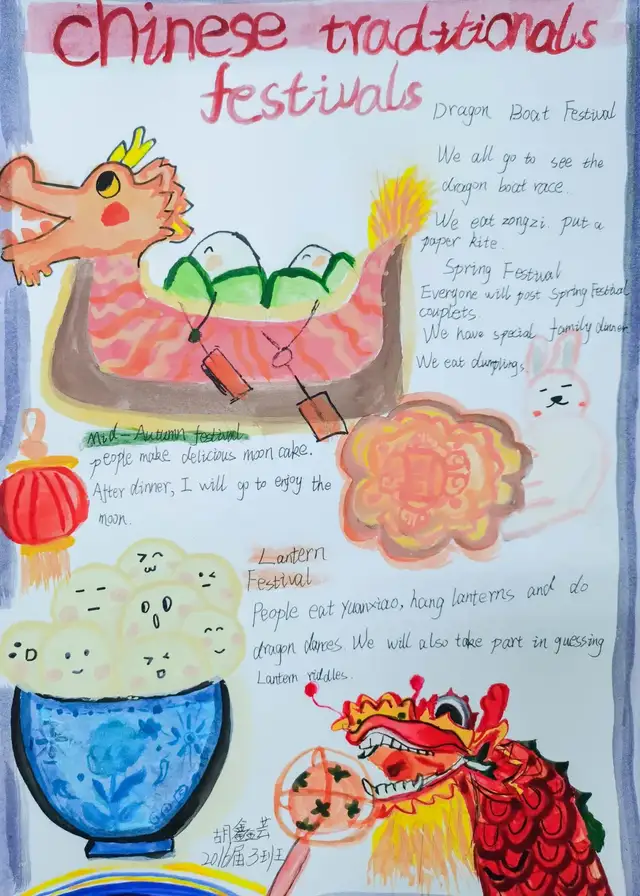 chinese traditionals
festivals
Dragon Boat Festival
We all go to see the
dragon boat race.
We eat zongzi. put a
paper kite.
Spring Festival
Everyone will post Spring Festival
couplets
We have special family dinner
We eat dumplings.
Mid-Autumn festival
people make delicious moon cake.
After dinner, I will go to enjoy the
moon.
Lantern
Festival
People eat Yuanxiao, hang lanterns and do
dragon dances. We will also take part in guessing
Lantern riddles.
胡鑫芸
2016届3班